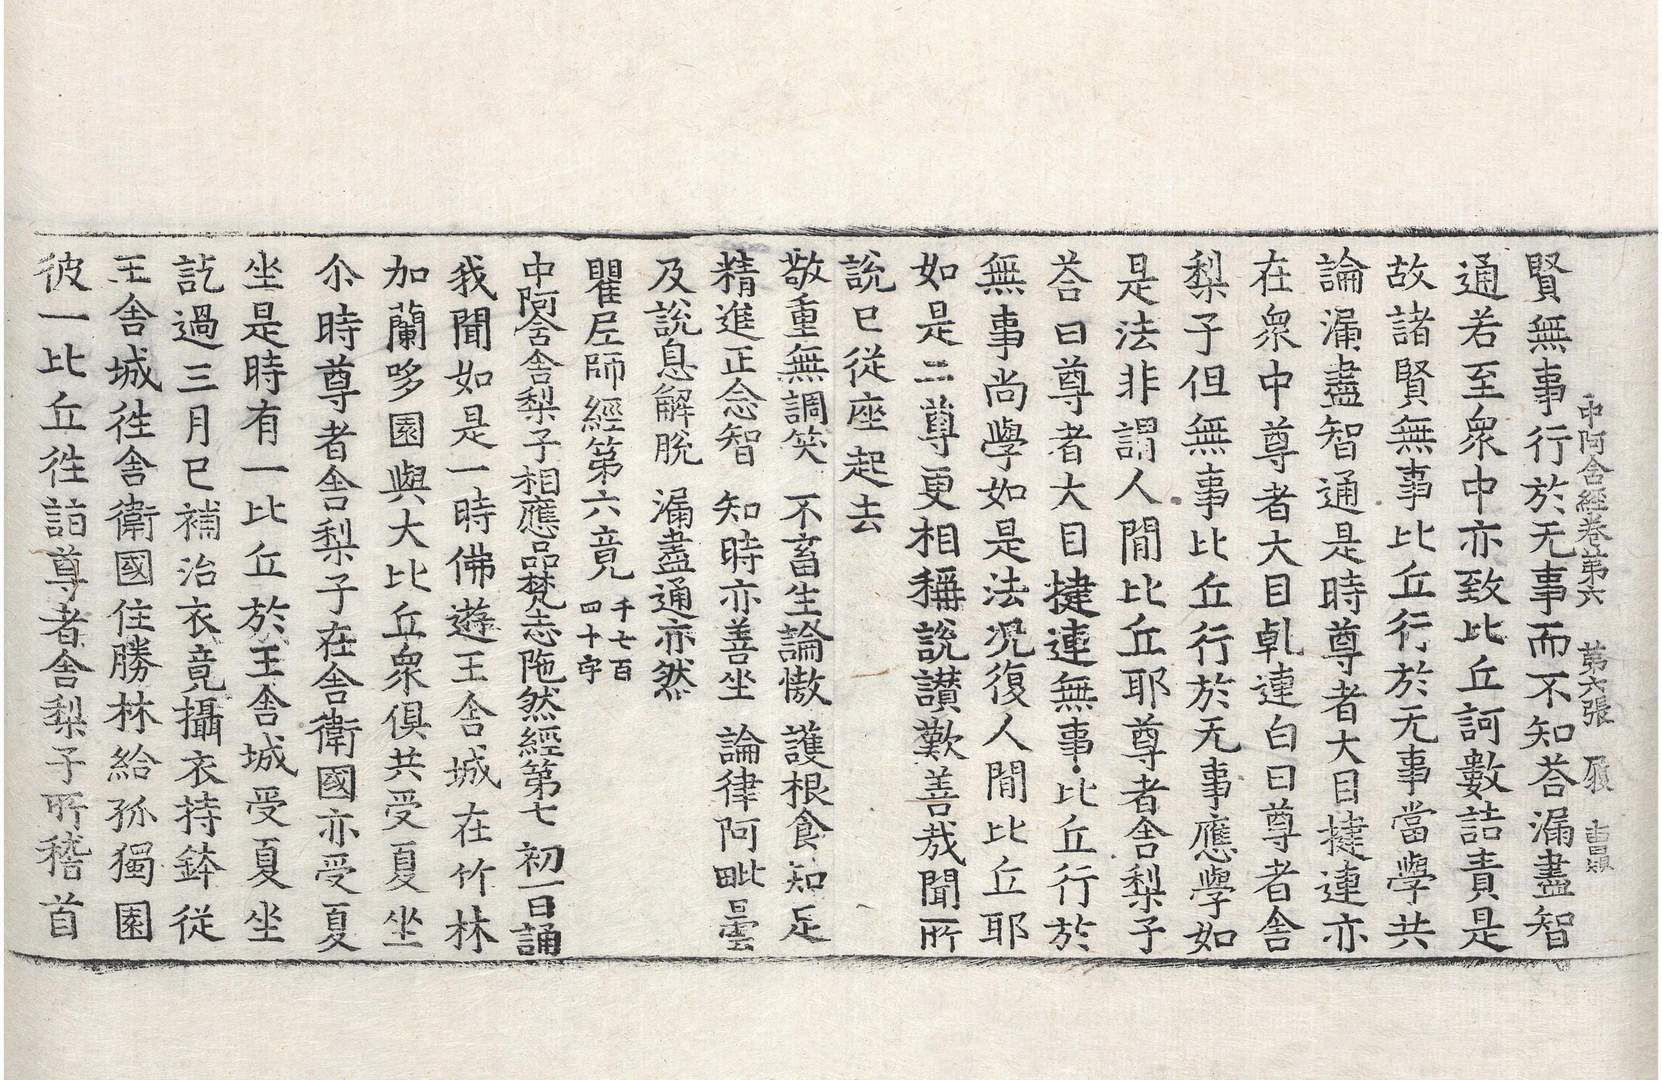 中阿含經卷第六　第六張　履
賢無事行於无事而不知荅漏盡智
通若至衆中亦致比丘訶數詰責是
故諸賢無事比丘行於无事當學共
論漏盡智通是時尊者大目揵連亦
在衆中尊者大目乹連白曰尊者舍
梨子但無事比丘行於无事應學如
是法非謂人閒比丘耶尊者舍梨子
荅曰尊者大目揵連無事比丘行於
無事尚學如是法況復人閒比丘耶
如是二尊更相稱說讃歎善哉聞所
說已從座起去
敬重無調笑　不畜生論慠　護根食知足
精進正念智　知時亦善坐　論律阿毗曇
及說息解脫　漏盡通亦然
瞿尼師經第六竟千七百四十字
中阿含舍梨子相應品梵志陁然經第七　初一日誦
我聞如是一時佛遊王舍城在竹林
加蘭哆園與大比丘衆俱共受夏坐
尒時尊者舍梨子在舍衛國亦受夏
坐是時有一比丘於王舍城受夏坐
訖過三月已補治衣竟攝衣持鉢從
王舍城徃舍衛國住勝林給孤獨園
彼一比丘徃詣尊者舍梨子所稽首